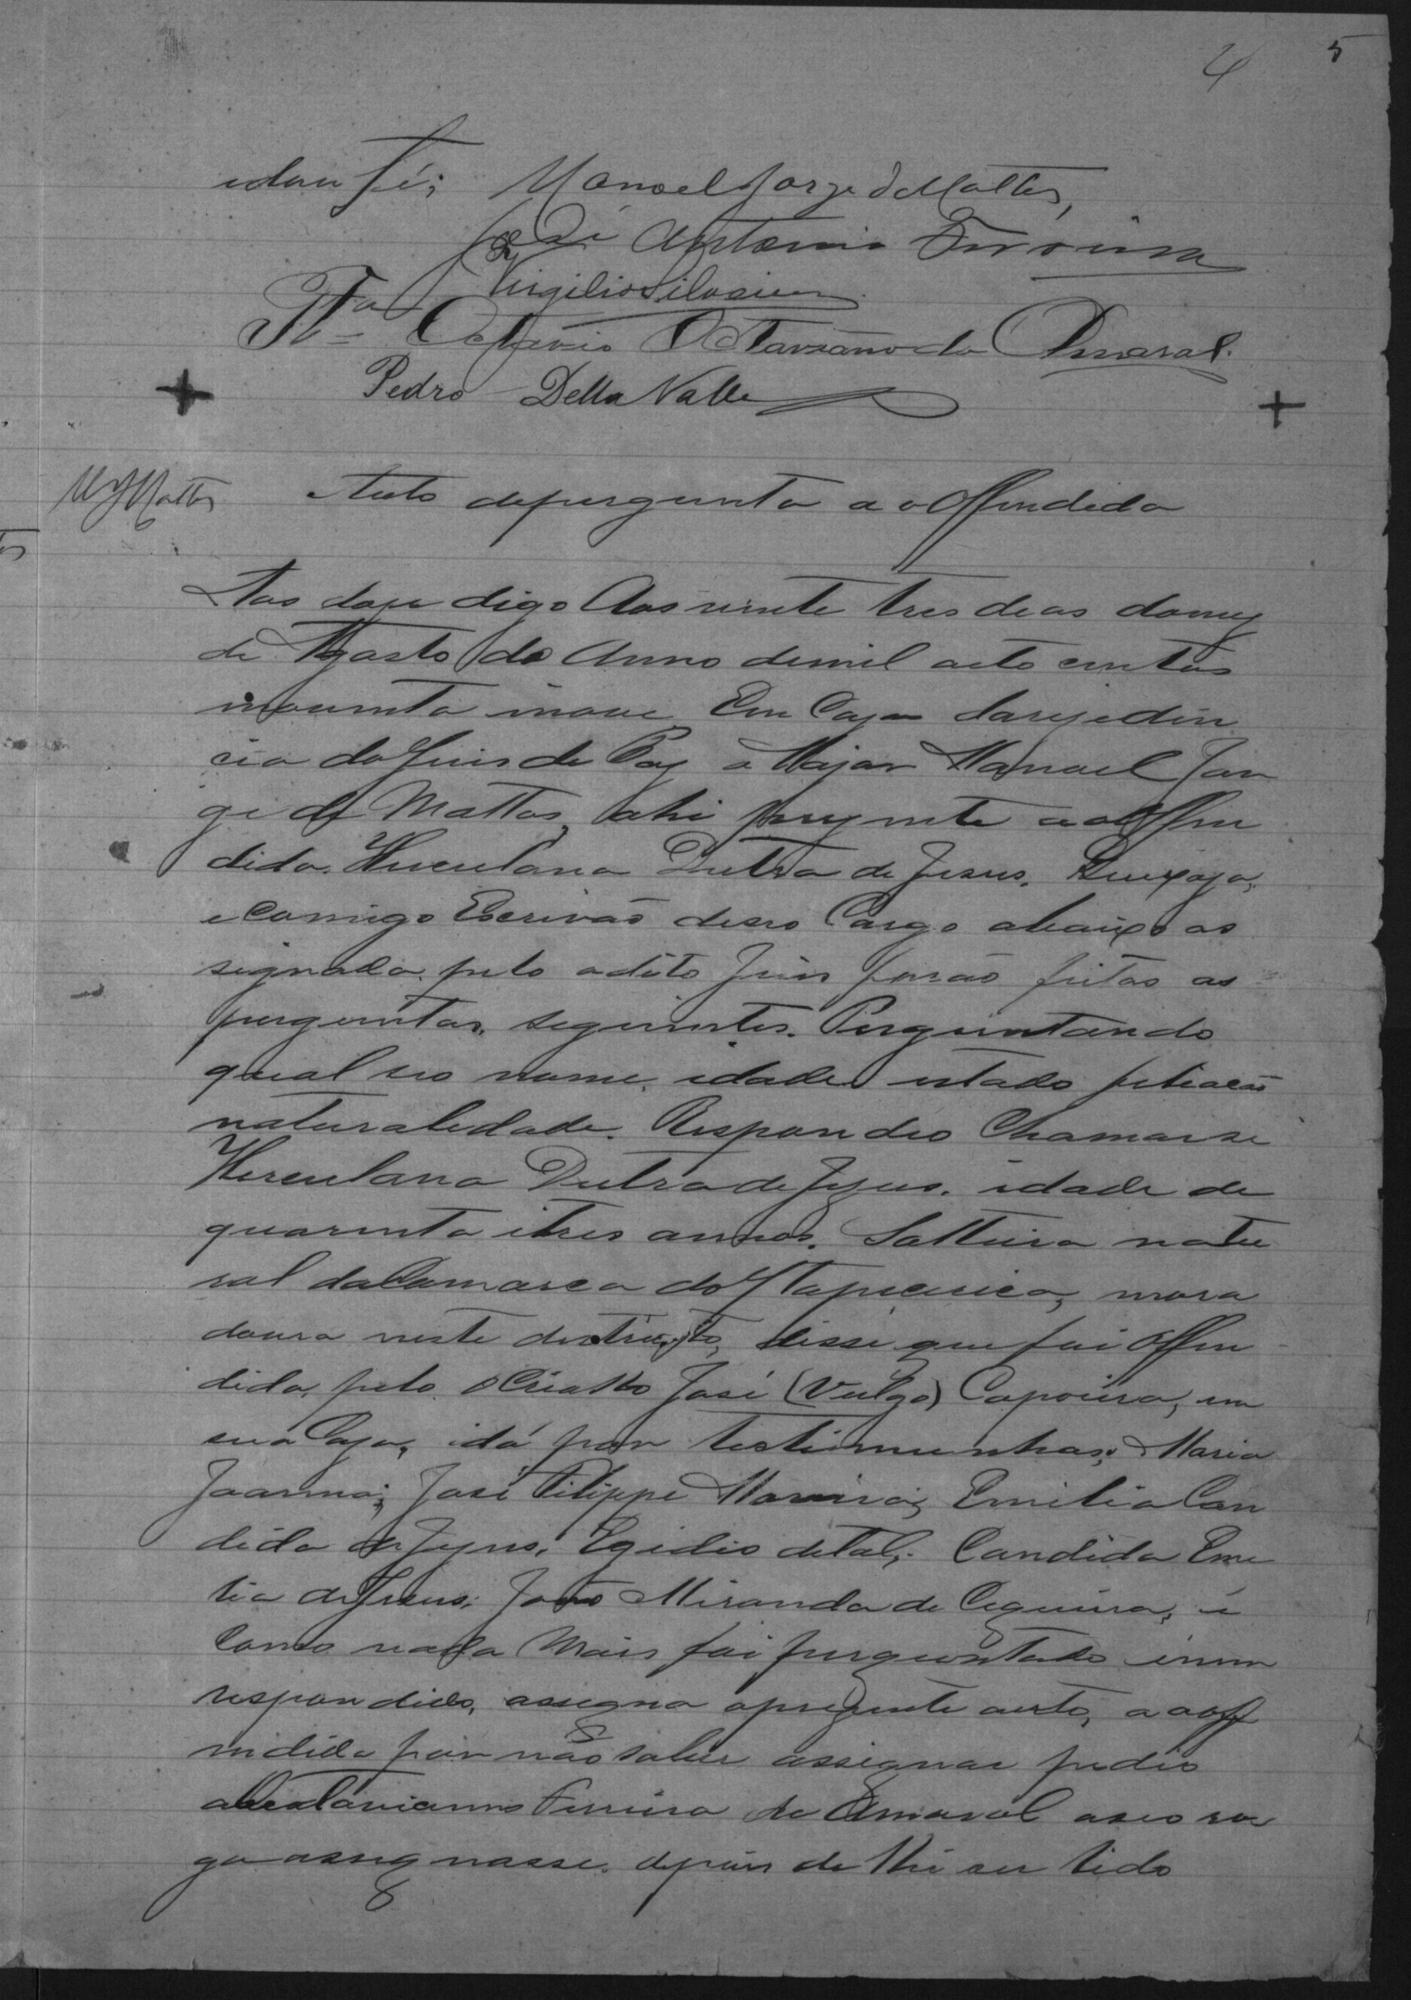 4 5
e dou fé; Manoel Jorge de Mattos,
José Antonio Ferreira
Virgilio
Tta Octavio Octaviano do Amaral.
Pedro Della Valle
MJMattos Auto de pergunta a o offendida
Aos doze digo Aos vinte tres deas do mez
de Agosto do Anno de mil oito centos
inoventa inove Em Caza da rezeden
cia do Juis de Paz o Major Manoel Jor
ge de Mattos, ahi prezente a o offen
dida. Herculana Dutra de Jesus. Queixoza,
e Comigo Escrivão de seo Cargo abaixo as
signado. pelo o dito Juis forão feitas as
perguntas. seguintes. Perguntando
qual seo nome. idade estado filiacão
naturaledade. Respondeo Chamarse
Herculana Dutra de Jezus. idade de
quarenta itres annos. Solteira natu
ral da Comarca do Itapicirica, mora
doura neste destricto, disse que foi offen
dida, pelo o Criollo José (Vulgo) Capoeira, em
sua Caza, idá por testemunhas; Maria
Joanna; José Filippe Moreira; Emilia Can
dida de Jezus, Egidio de tal; Candida Eme
lia de Jesus; João Miranda de Cequeira, é
Como nada Mais foi perguntado inem
respondido, assigna oprezente auto, a a off
indida por não saber assignar pedio
a Octavianno Ferreira do Amaral a seo ro
go assignasse. depois de lhi ser lido